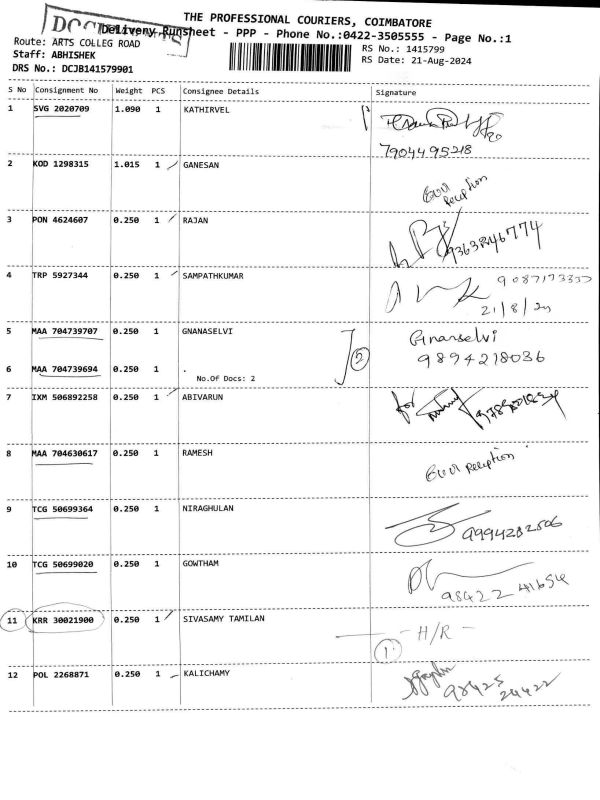 THE PROFESSIONAL COURIERS, COIMBATORE
DOCUMENTS
Delivery Runsheet - PPP - Phone No.:0422-3505555 - Page No.:1
Route: ARTS COLLEG ROAD
RS No.: 1415799
Staff: ABHISHEK
RS Date: 21-Aug-2024
DRS No.: DCJB141579901
S No Consignment No Weight PCS Consignee Details Signature
1 SVG 2020709 1.090 1 KATHIRVEL
7904495218
2 KOD 1298315 1.015 1 GANESAN
reception
3 PON 4624607 0.250 1 RAJAN
4 TRP 5927344 0.250 1 SAMPATHKUMAR
21/8/24
5 MAA 704739707 0.250 1 GNANASELVI Gnanselvi
9894218036
2
6 MAA 704739694 0.250 1 .
No.Of Docs: 2
7 IXM 506892258 0.250 1 ABIVARUN for
8 MAA 704630617 0.250 1 RAMESH
reception
9 TCG 50699364 0.250 1 NIRAGHULAN
9994282506
10 TCG 50699020 0.250 1 GOWTHAM
98422 41654
11 KRR 30021900 0.250 1 SIVASAMY TAMILAN - H/R -
1
12 POL 2268871 0.250 1 KALICHAMY
98425
24422